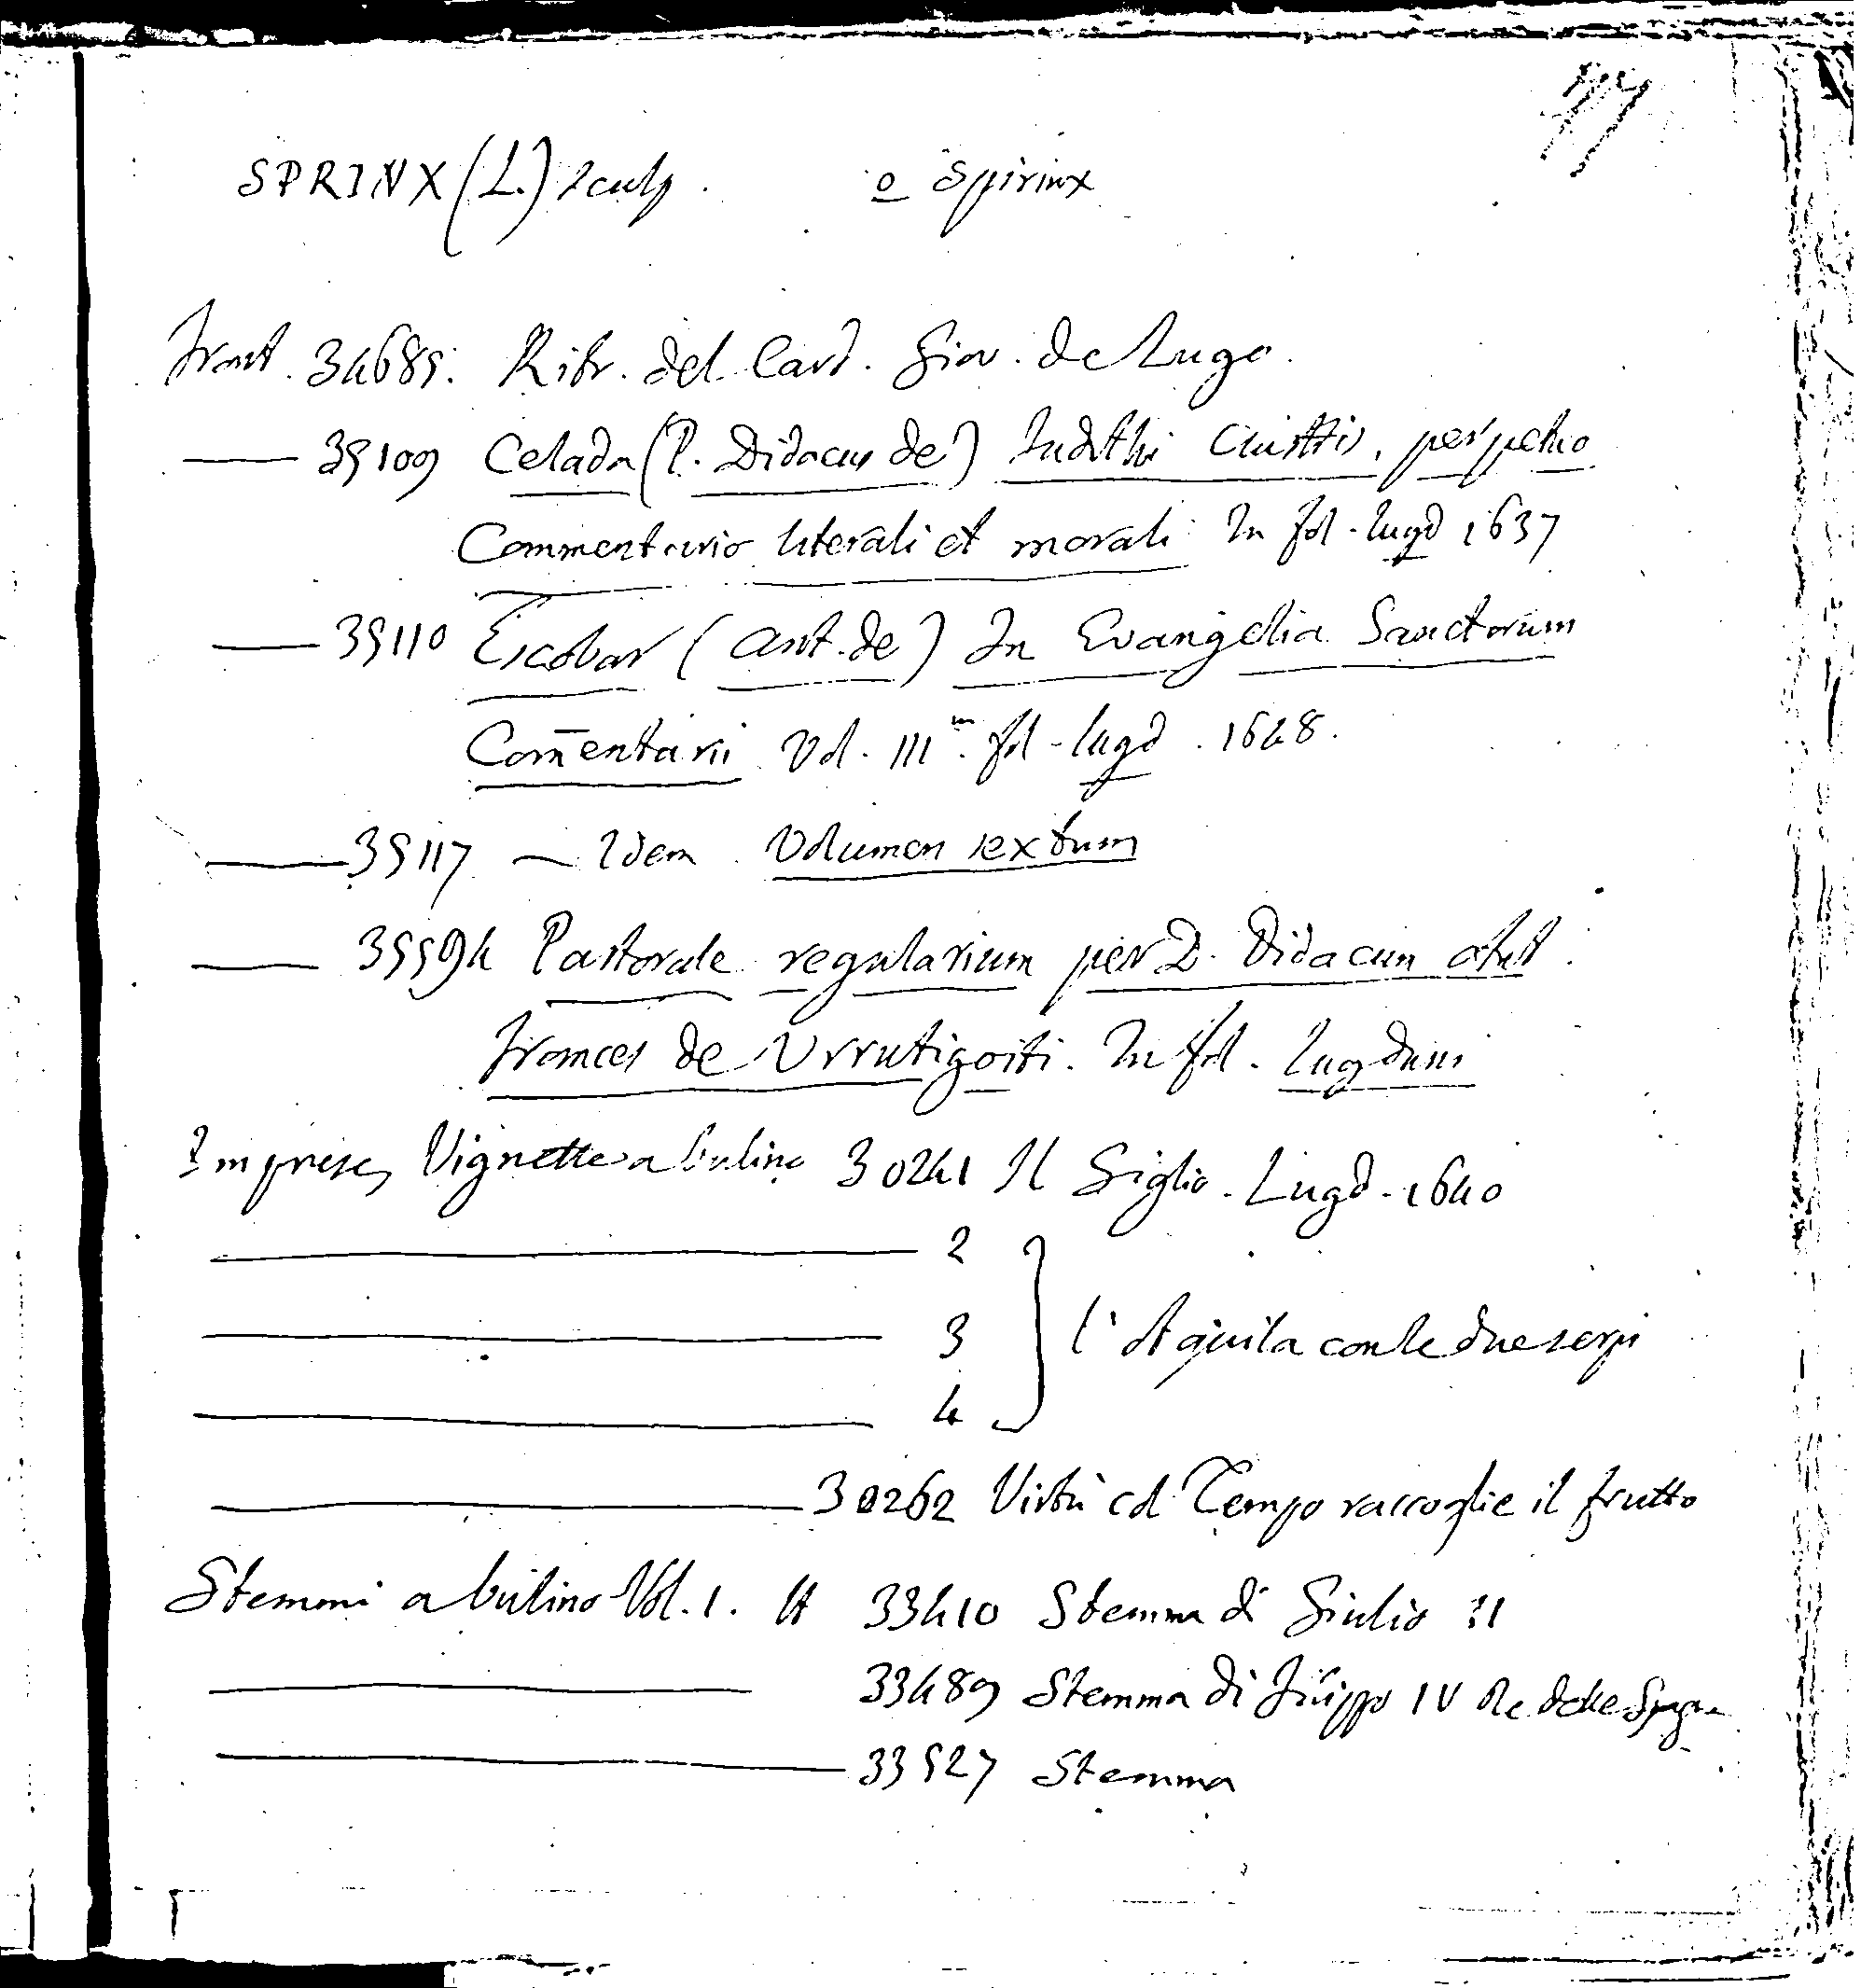 SPRINX (L.) sculp. o Spirinx
Front. 34685. Ritr. del Card. Giov. de Lugo.
— 35109 Celada (P. Didacus de) Judith perpetuo
Commentario literali et morali In fol. Lugd 1637
— 35110 Escobar (Ant. de) In Evangelia Sanctorum
Com̄entarii Vol. III. fol. Lugd. 1648.
— 35117 — Idem Volumen sextum
— 35594 Pastorale regularium per D. Didacum
Frances de Urrutigoiti. In fol. Lugduni
Imprese, Vignette a bulino 30241 Il Giglio. Lugd. 1640
— 2
— 3 } l'Aquila con le due serpi
— 4
— 30262 Virtù col Tempo raccoglie il frutto
Stemmi a bulino Vol. 1. 33410 Stemma di Giulio II
— 33489 Stemma di Filippo IV Re delle Spagne
— 33527 Stemma